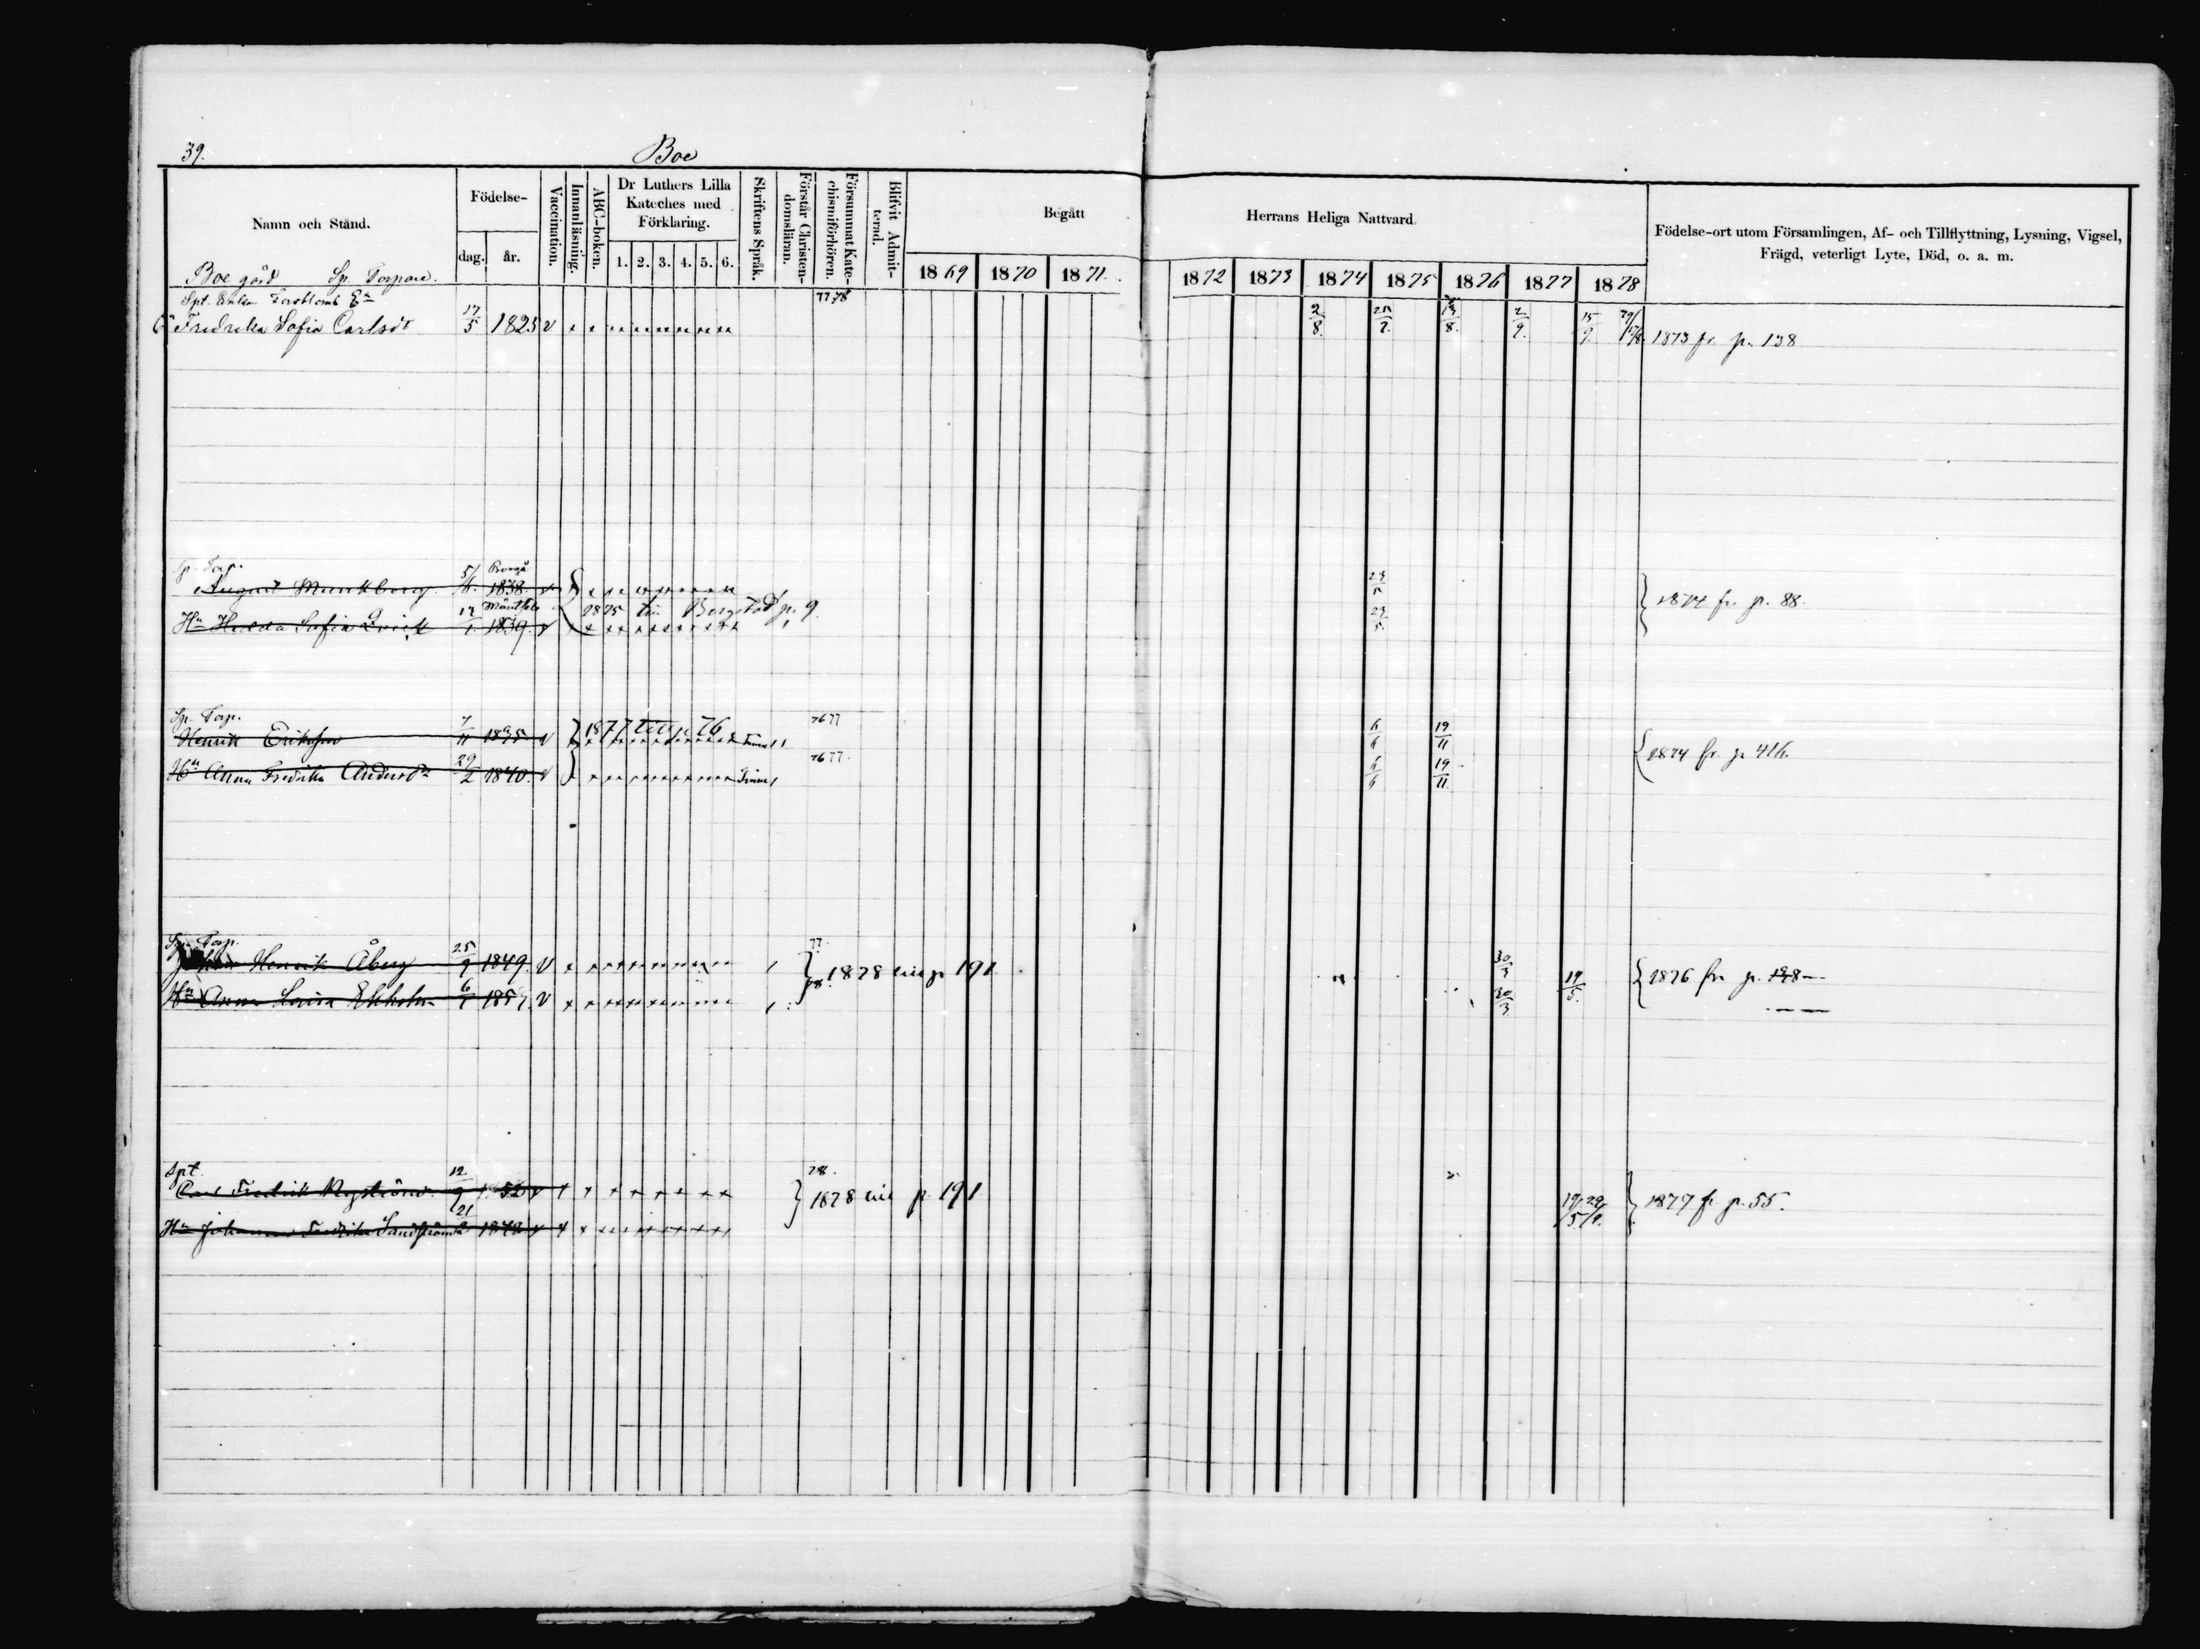 39. Boe
Namn och Stånd. Födelse- dag. år. Vaccination. Innanläsning. ABC-boken. Dr Luthers Lilla Kateches med Förklaring. 1. 2. 3. 4. 5. 6. Skriftens Språk. Förstår Christendomsläran. Försummat Katechismiförhören. Blifvit Admitterad. Begått Herrans Heliga Nattvard. Födelse-ort utom Församlingen, Af- och Tillflyttning, Lysning, Vigsel, Frägd, veterligt Lyte, Död, o. a. m.
1869 1870 1871. 1872 1873 1874 1875 1876 1877 1878
Boe gård Sp. Torpare.
Spt. Enka 77.78
Fredrika Sofia Carlsdr 17/5 1825 v 2/8. 2/9. 15/9. 1873 fr. p. 138
Sp. Torp. Borgå
August Munkberg 1838. v 23/5 1874 fr. p. 88.
Mäntsälä 1875 till p. 9
Hu Hedda Sofia Qvick 1839. v 23/5.
Sp. Torp. 76 77
Henrik Eriksson 7/11 1835 v 1877 till p. 76 6/6 19/11 1874 fr. p. 416.
76 77.
Hu Anna Fredrika Andersdr 29/2 1840. v 6/6 19/11.
Sp. Torp. 77.
Henrik Åberg 25/9 1849. v 1878 till p. 191 30/3 1876 fr. p. 198
Hu Anna Lovisa Ekholm 6/1 1857. v 78. 30/3. 19/5.
Spt. 78.
Carl Fredrik Nyström 12/9 1852 v 1878 till p. 191 19/5 29/9. 1877 fr p. 55.
Hu Johanna Fredrika Sandström 21